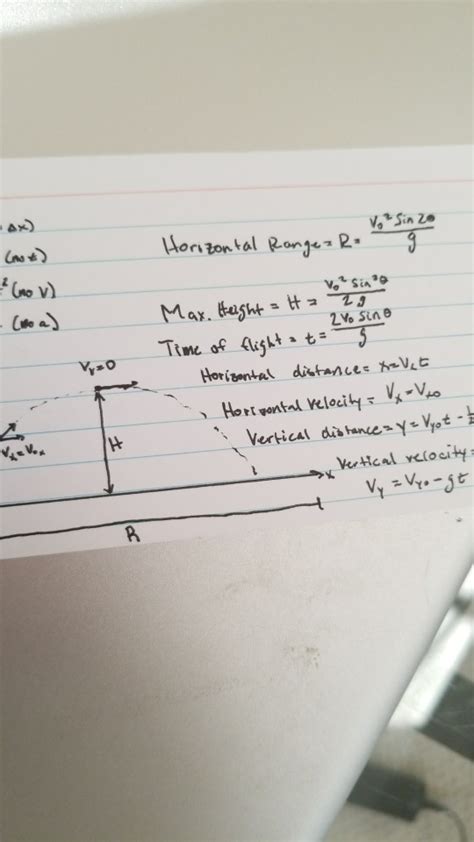 Δx)
(no t)
² (no V)
(no a)
Horizontal Range = R = V₀² Sin 2θ / g
Max. Height = H = V₀² Sin²θ / 2g
Time of flight = t = 2V₀ Sin θ / g
Horizontal distance = x = Vₓt
Horizontal velocity = Vₓ = Vₓ₀
Vertical distance = y = Vy₀t - 1/
Vertical velocity =
Vy = Vy₀ - gt
Vy = 0
Vₓ = V₀ₓ
H
x
R